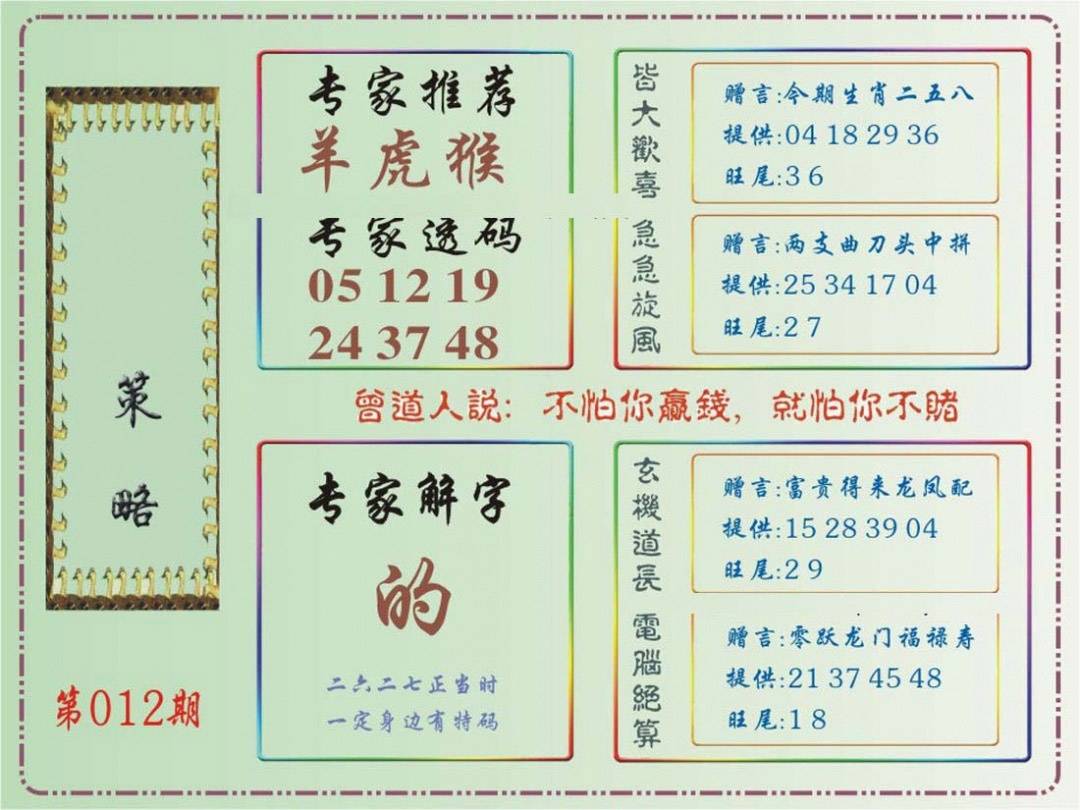 策略
第012期
专家推荐
羊虎猴
专家透码
05 12 19
24 37 48
皆大歡喜
赠言:今期生肖二五八
提供:04 18 29 36
旺尾:3 6
急急旋风
赠言:两支曲刀头中拼
提供:25 34 17 04
旺尾:2 7
曾道人説:不怕你贏錢,就怕你不賭
专家解字
的
二六二七正当时
一定身边有特码
玄機道長
赠言:富贵得来龙凤配
提供:15 28 39 04
旺尾:2 9
電腦絕算
赠言:零跃龙门福禄寿
提供:21 37 45 48
旺尾:1 8